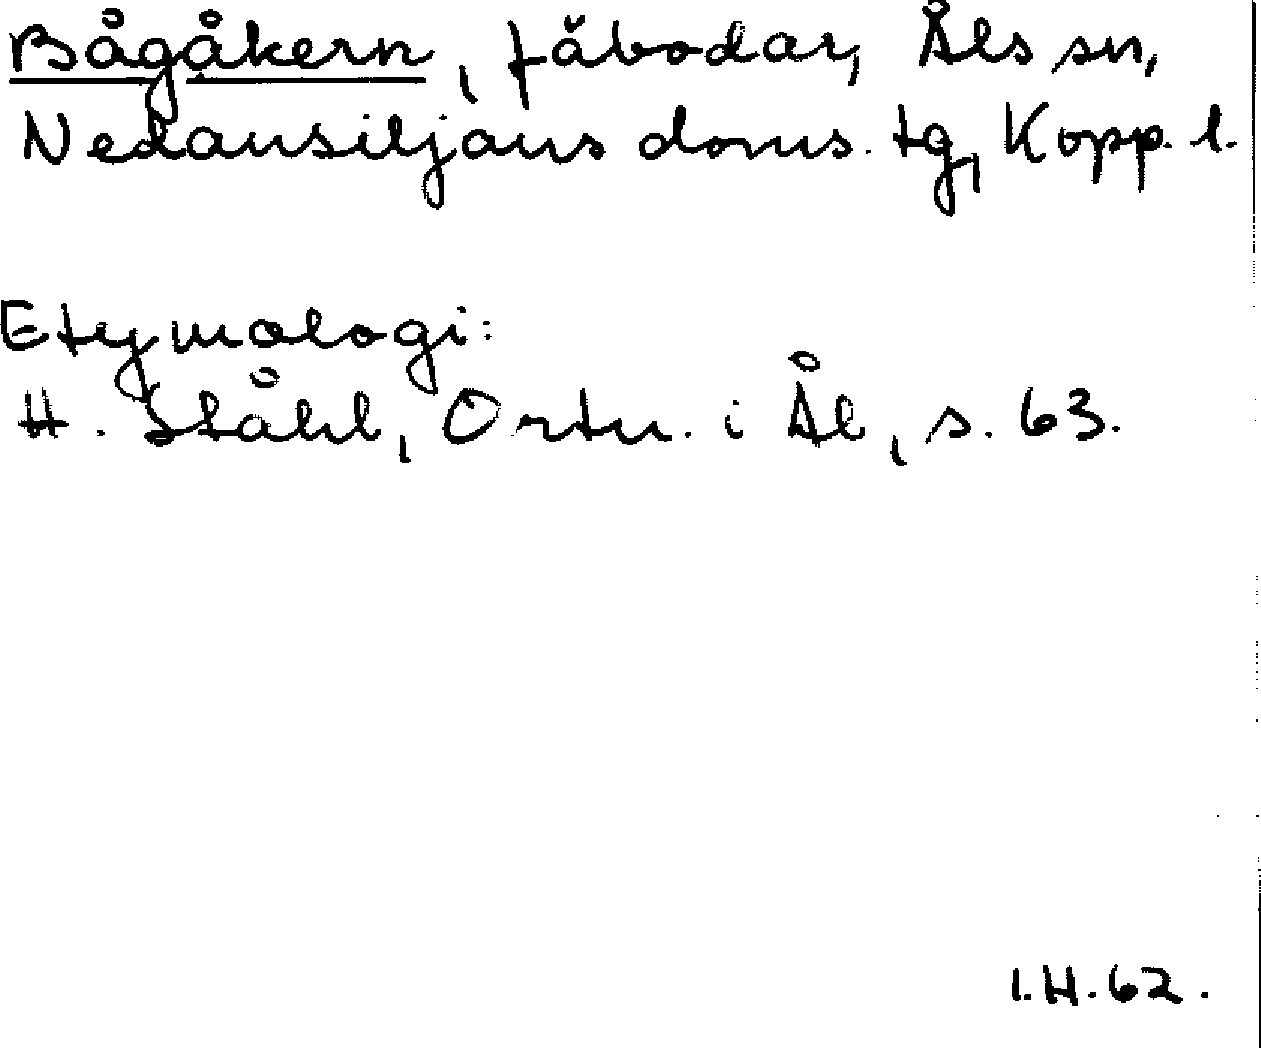 Bågåkern, fäbodar, Åls sn,
Nedansiljans doms. tg, Kopp. l.
Etymologi:
H. Ståhl, Ortn. i Ål, s. 63.
I.H.62.